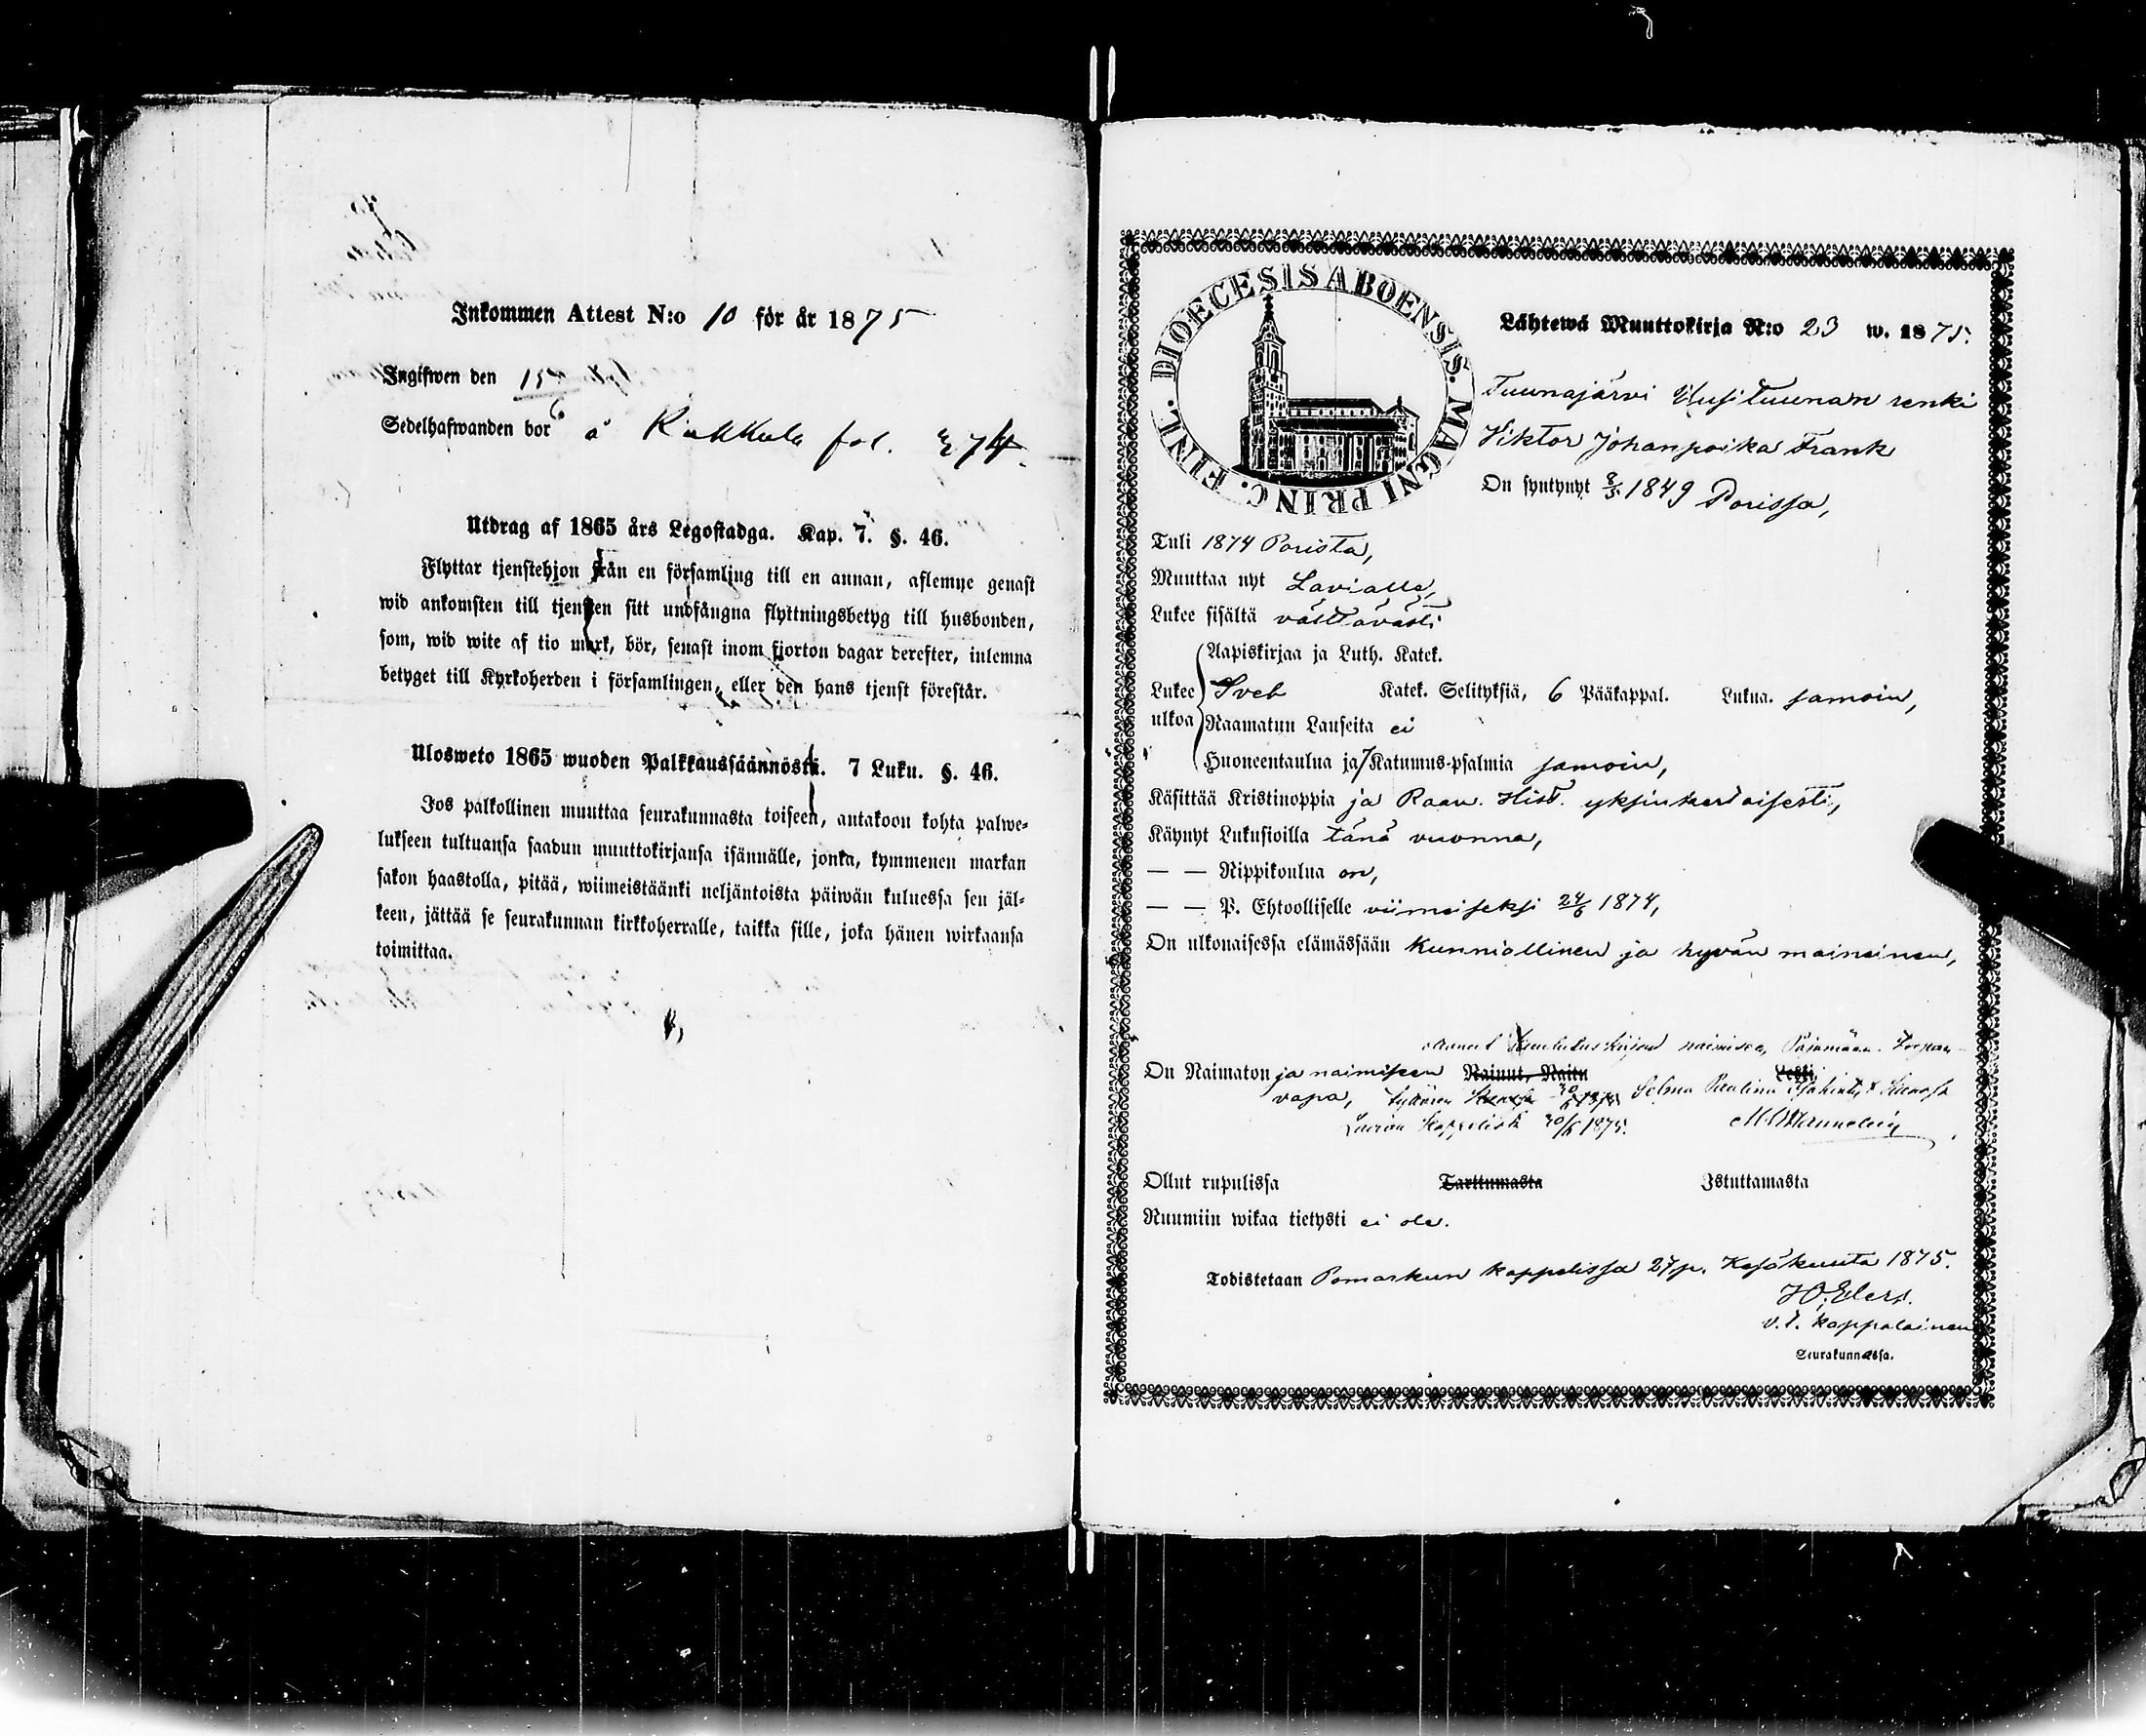 Inkommen Attest N:o 10 för år 1875
Ingifwen den
Sedelhafwanden bor å Kukkula fol. 374.
Utdrag af 1865 års Legostadga. Kap. 7. §. 46.
Flyttar tjenstehjon från en församling till en annan, aflemne genast
wid ankomsten till tjensten sitt undfångna flyttningsbetyg till husbonden,
som, wid wite af tio mark, bör, senast inom fjorton dagar derefter, inlemna
betyget till Kyrkoherden i församlingen, eller den hans tjenst förestår.
Ulosweto 1865 wuoden Palkkaussäännöstä. 7 Luku. §. 46.
Jos palkollinen muuttaa seurakunnasta toiseen, antakoon kohta palwe-
lukseen tultuansa saadun muuttokirjansa isännälle, jonka, kymmenen markan
sakon haastolla, pitää, wiimeistäänki neljäntoista päiwän kuluessa sen jäl-
keen, jättää se seurakunnan kirkkoherralle, taikka sille, joka hänen wirkaansa
toimittaa.
DIOECESIS ABOENSIS. MAGNI PRINC. FINL.
Lähtewä Muuttokirja N:o 23 w. 1875.
Tuunajärvi Uusituunan renki
Viktor Johanpoika Frank
On syntynyt 8/3. 1849 Porissa,
Tuli 1874 Porista,
Muuttaa nyt Lavialle,
Lukee sisältä välttävästi
Aapiskirjaa ja Luth. Katek.
Lukee Sveb Katek. Selityksiä, 6 Pääkappal. Lukua. samoin,
ulkoa Raamatun Lauseita ei
Huoneentaulua ja 7 Katumus-psalmia samoin,
Käsittää Kristinoppia ja Raam. Hist. yksinkertaisesti,
Käynyt Lukusioilla tänä vuonna,
— — Rippikoulua on,
— — P. Ehtoolliselle viimeiseksi 24/6 1874,
On ulkonaisessa elämässään kunniallinen ja hyvän maineinen,
kuulutuskirjan
On Naimaton ja naimiseen Nainut, Naitu Leski
vapa, tyttären Selma Paulina
Lavian Kappelista 1875.
Ollut rupulissa Tarttumasta Istuttamasta
Ruumiin wikaa tietysti ei ole.
Todistetaan Pomarkun kappelissa 27 p. Kesäkuuta 1875.
v.t. kappalainen
Seurakunnassa.